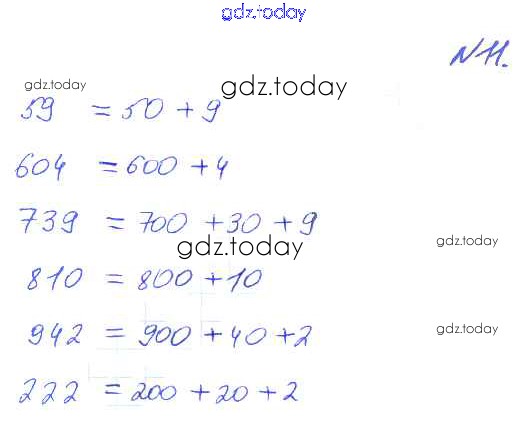 gdz.today
N 11.
gdz.today
gdz.today
59 = 50 + 9
604 = 600 + 4
739 = 700 + 30 + 9
gdz.today
gdz.today
810 = 800 + 10
942 = 900 + 40 + 2
gdz.today
222 = 200 + 20 + 2